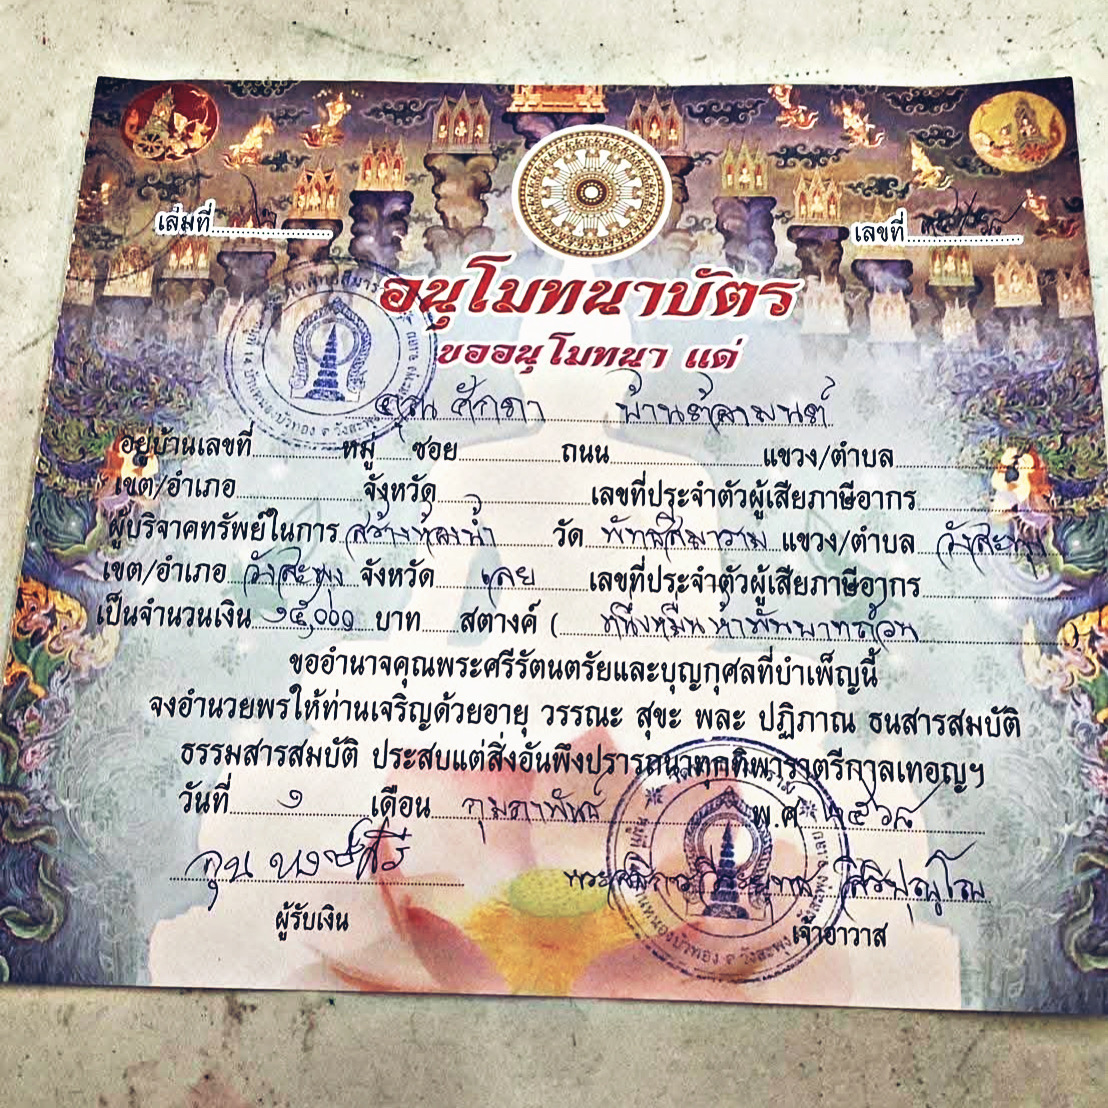 เล่มที่
เลขที่
อนุโมทนาบัตร
ขออนุโมทนา แด่
คุณ ศักดา
อยู่บ้านเลขที่ หมู่ ซอย ถนน แขวง/ตำบล
เขต/อำเภอ จังหวัด เลขที่ประจำตัวผู้เสียภาษีอากร
ผู้บริจาคทรัพย์ในการ สร้างห้องน้ำ วัด พัทธสีมาราม แขวง/ตำบล วังสะพุง
เขต/อำเภอ วังสะพุง จังหวัด เลย เลขที่ประจำตัวผู้เสียภาษีอากร
เป็นจำนวนเงิน ๑๕,๐๐๐ บาท สตางค์ ( หนึ่งหมื่นห้าพันบาทถ้วน )
ขออำนาจคุณพระศรีรัตนตรัยและบุญกุศลที่บำเพ็ญนี้
จงอำนวยพรให้ท่านเจริญด้วยอายุ วรรณะ สุขะ พละ ปฏิภาณ ธนสารสมบัติ
ธรรมสารสมบัติ ประสบแต่สิ่งอันพึงปรารถนาทุกทิพาราตรีกาลเทอญฯ
วันที่ ๑ เดือน กุมภาพันธ์ พ.ศ. ๒๕๖๘
ผู้รับเงิน
เจ้าอาวาส